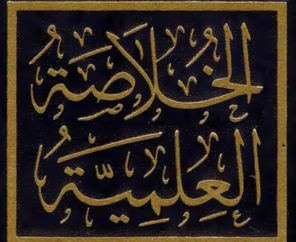 الخلاصة
العلمية